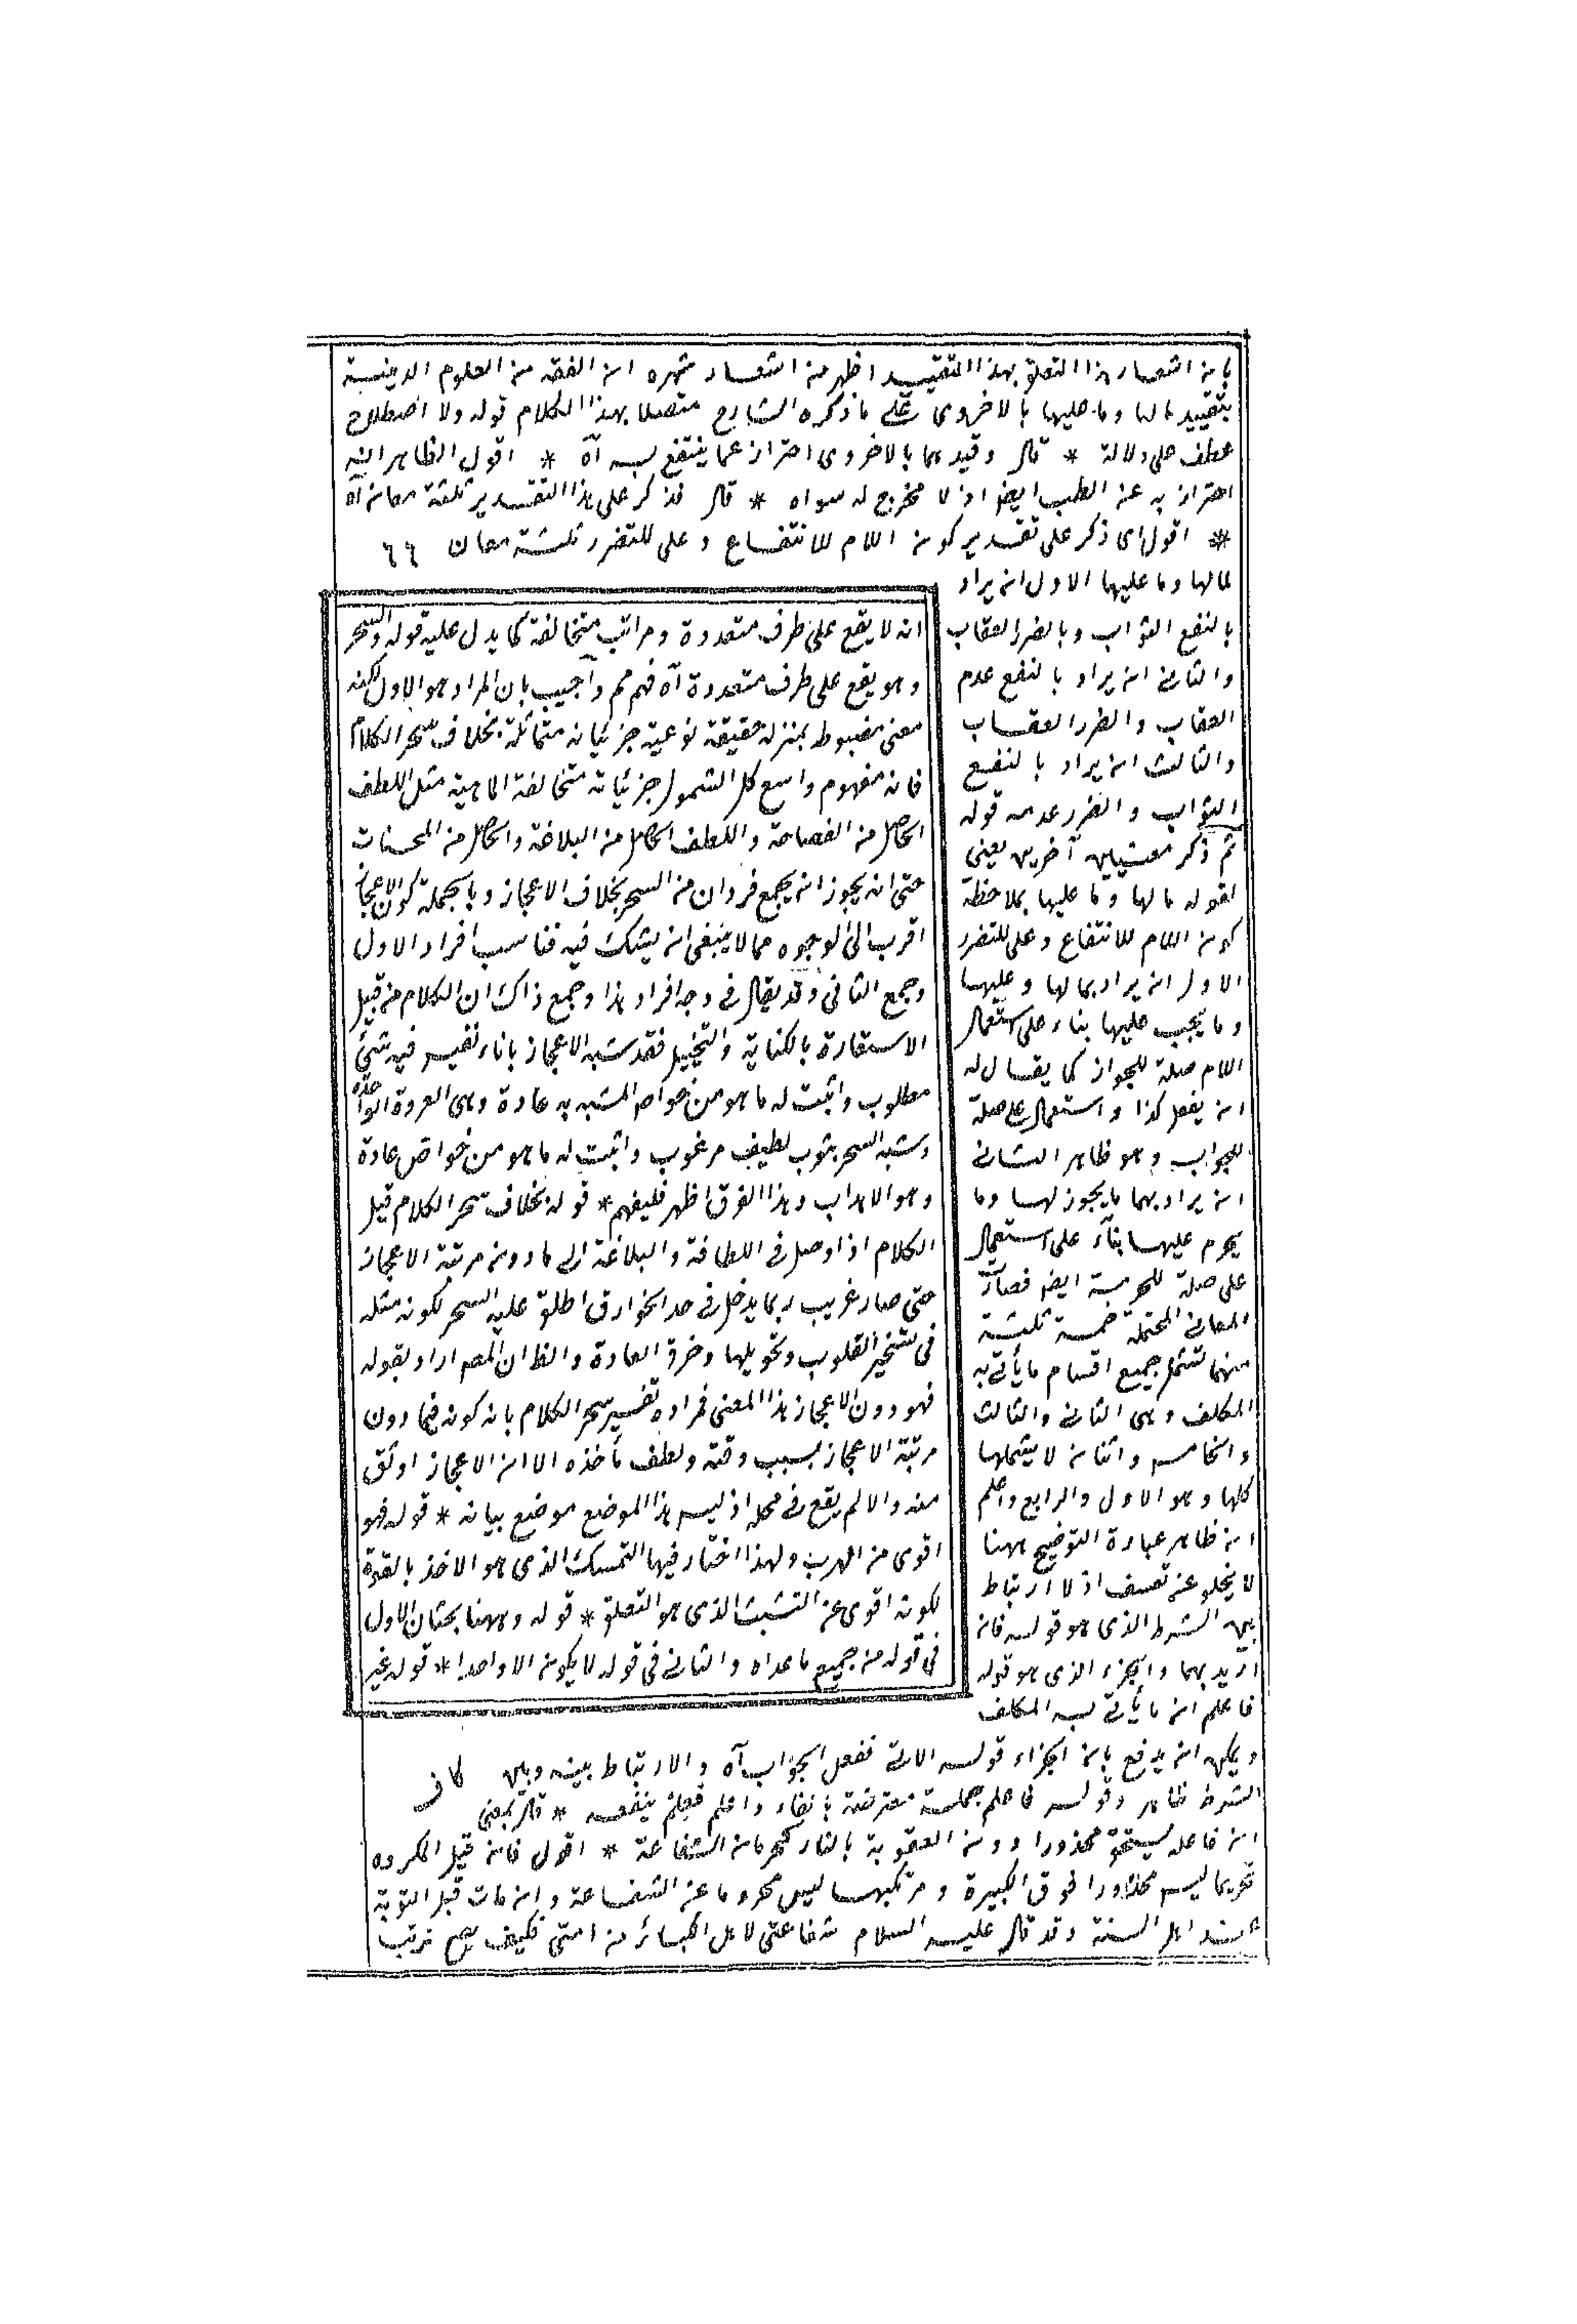 بان اشعار هذا التعلق بهذا التقييد اظهر من اشعار شهرة ان الفقه من العلوم الدينية
بتقييد مالها وما عليها بالاخروى على ما ذكره الشارح متصلا بهذا الكلام قوله ولا اصطلاح
عطف على دلالة * قال وقيدهما بالاخروى احتراز عما ينتفع به آه * اقول الظاهر انه
احتراز به عن الطب ايضا اذ لا مخرج له سواه * قال فذكر على هذا التقدير ثلثة معان آه
* اقول اى ذكر على تقدير كون اللام للانتفاع وعلى للتضرر ثلثة معان ٦٦
لمالها وما عليها الاول ان يراد
بالنفع الثواب وبالضرر العقاب
والثانى ان يراد بالنفع عدم
العقاب والضرر العقاب
والثالث ان يراد بالنفع
الثواب والضرر عدمه قوله
ثم ذكر معنيين آخرين يعنى
لقوله مالها وما عليها بملاحظة
كون اللام للانتفاع وعلى للتضرر
الاول ان يراد بمالها وعليها
وما يجب عليها بناء على استعمال
اللام صلة للجواز كما يقال له
ان يفعل كذا واستعمال على صلة
للجواب وهو ظاهر الثانى
ان يراد بهما ما يجوز لها وما
يحرم عليها بناء على استعمال
على صلة للحرمة ايضا فصارت
المعانى المحتملة خمسة ثلثة
منها تشمل جميع اقسام ما يأتى به
المكلف وهى الثانى والثالث
والخامس واثنان لا يشملها
كلها وهو الاول والرابع واعلم
ان ظاهر عبارة التوضيح ههنا
لا يخلو عن تعسف اذ لا ارتباط
بين الشرط الذى هو قوله فان
اريد بهما والجزاء الذى هو قوله
فاعلم ان ما يأتى به المكلف
ويمكن ان يدفع بان الجزاء قوله الآتى ففعل الجواب آه والارتباط بينه وبين
الشرط ظاهر وقوله فاعلم جملة معترضة بالفاء واعلم فعلم ينفعه * قال بمعنى
ان فاعله يستحق محذورا دون العقوبة بالنار كحرمان الشفاعة * اقول فان قيل المكروه
تحريما ليس محذورا فوق الكبيرة ومرتكبها ليس محروما عن الشفاعة وان مات قبل التوبة
عند اهل السنة وقد قال عليه السلام شفاعتى لاهل الكبائر من امتى فكيف يصح ترتب
انه لا يقع على طرف متعددة ومراتب متخالفة كما يدل عليه قوله والسحر
وهو يقع على طرف متعددة آه فهم مم واجيب بان المراد هو الاول لكنه
معنى مضبوط بمنزلة حقيقة نوعية جزئياته متماثلة بخلاف سحر الكلام
فانه مفهوم واسع كل الشمول جزئياته متخالفة الماهية مثل اللطف
الحاصل من الفصاحة واللطف الحاصل من البلاغة والحاصل من المحسنات
حتى انه يجوز ان يجمع فردان من السحر بخلاف الاعجاز وبالجملة كون الاعجاز
اقرب الى الوجوه مما لا ينبغى ان يشك فيه فناسب افراد الاول
وجمع الثانى وقد يقال فى وجه افراد هذا وجمع ذاك ان الكلام من قبيل
الاستعارة بالكناية والتخييل فقد شبه الاعجاز باناء نفيس فيه شئ
مطلوب واثبت له ما هو من خواص المشبه به عادة وهى العروة الواحدة
وشبه السحر بثوب لطيف مرغوب واثبت له ما هو من خواص عادة
وهو الاهداب وهذا الفرق اظهر فليفهم * قوله بخلاف سحر الكلام قيل
الكلام اذا وصل فى اللطافة والبلاغة الى ما دون مرتبة الاعجاز
حتى صار غريب ربما يدخل فى حد الخوارق اطلق عليه السحر لكونه مثله
فى تسخير القلوب وتحويلها وخرق العادة والظ ان المصم اراد بقوله
فهو دون الاعجاز هذا المعنى فمراده تفسير سحر الكلام بانه كونه فيما دون
مرتبة الاعجاز بسبب دقته ولطف مأخذه الا ان الاعجاز اوثق
منه والا لم يقع فى محله اذ ليس هذا الموضع موضع بيانه * قوله فهو
اقوى من الهدب ولهذا اختار فيها التمسك الذى هو الاخذ بالقوة
لكونه اقوى عن التشبث الذى هو التعلق * قوله وههنا بحثان الاول
فى قوله من جميع ما عداه والثانى فى قوله لا يكون الا واحدا * قوله غير
كاف